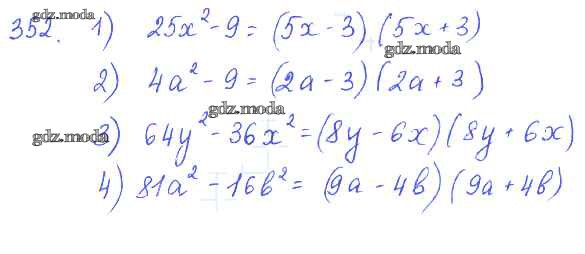 gdz.moda
352. 1) 25x² - 9 = (5x - 3)(5x + 3)
gdz.moda
2) 4a² - 9 = (2a - 3)(2a + 3)
gdz.moda
gdz.moda
3) 64y² - 36x² = (8y - 6x)(8y + 6x)
4) 81a² - 16b² = (9a - 4b)(9a + 4b)